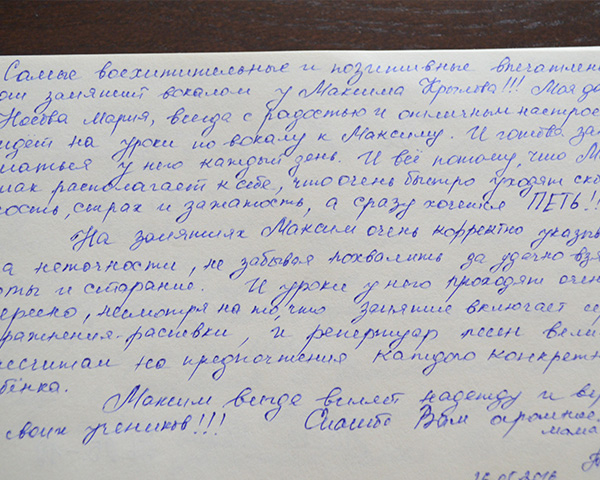 Самые восхитительные и позитивные впечатлен
от занятий вокалом у Максима Крылова!!! Моя до
Носова Мария, всегда с радостью и отличным настрое
идёт на уроки по вокалу к Максиму. И готова за
маться у него каждый день. И всё потому, что М
так располагает к себе, что очень быстро уходят ск
ность, страх и зажатость, а сразу хочется ПЕТЬ!!
На занятиях Максим очень корректно указы
на неточности, не забывая похвалить за удачно взя
ноты и старание. И уроки у него проходят очен
тересно, несмотря на то, что занятие включает
ражнения-распевки, и репертуар песен вели
рассчитан на предпочтения каждого конкретн
бёнка.
Максим всегда вселяет надежду и ве
своих учеников!!! Спасибо Вам огромное
мама